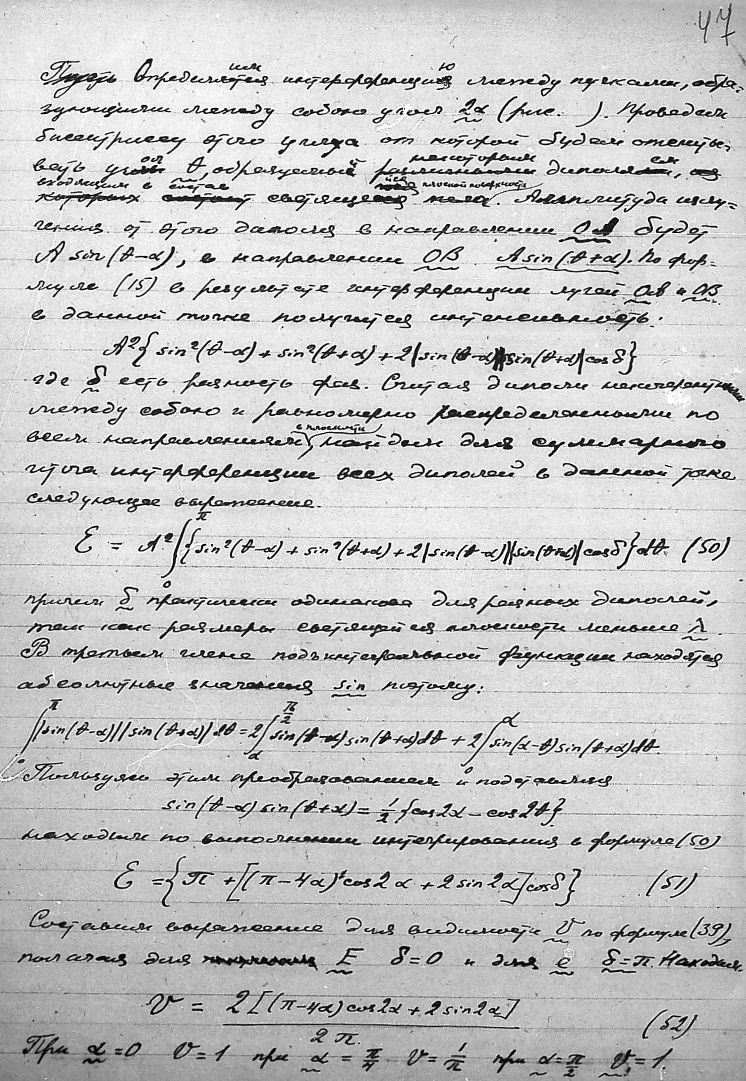 47
Определим интерференцию между пучками, обра-
зующими между собою угол 2α (рис. ). Проведем
биссектрису этого угла от которой будем отсчиты-
вать угол θ, образуемый некоторым диполем,
входящим в состав светящейся плоской поверхности. Амплитуда излу-
чения от этого диполя в направлении OA будет
A sin(θ-α), в направлении OB A sin(θ+α). По фор-
муле (15) в результате интерференции лучей OA и OB
в данной точке получится интенсивность:
A²{sin²(θ-α) + sin²(θ+α) + 2|sin(θ-α)||sin(θ+α)|cosδ}
где δ есть разность фаз. Считая диполи некогерентными
между собою и равномерно распределенными по
всем направлениям в плоскости, найдем для суммарного
итога интерференции всех диполей в данной точке
следующее выражение.
ℰ = A²∫₀^π{sin²(θ-α) + sin²(θ+α) + 2|sin(θ-α)||sin(θ+α)|cosδ}dθ. (50)
причем δ практически одинакова для разных диполей,
так как размеры светящейся плоскости меньше λ.
В третьем члене подъинтегральной функции находятся
абсолютные значения sin поэтому:
∫₀^π|sin(θ-α)||sin(θ+α)|dθ = 2∫_α^{π/2} sin(θ-α)sin(θ+α)dθ + 2∫₀^α sin(α-θ)sin(θ+α)dθ
Пользуясь этим преобразованием и подставляя
sin(θ-α) sin(θ+α) = ½{cos2α - cos2θ}
находим по выполнении интегрирования в формуле (50)
ℰ = {π + [(π-4α) cos2α + 2 sin2α] cosδ} (51)
Составим выражение для видимости V по формуле (39),
полагая для E δ=0 и для e δ=π. Находим
V = 2[(π-4α)cos2α + 2 sin2α] / 2π. (52)
При α=0 V=1 при α = π/4 V = 1/π при α = π/2 V = 1.